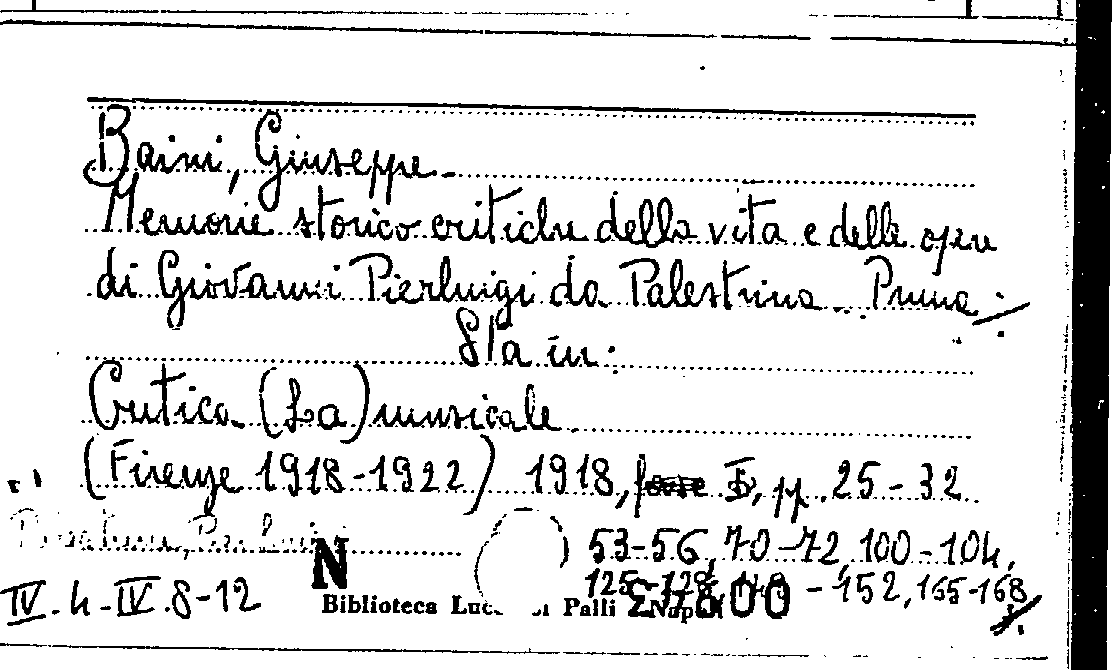 Baini, Giuseppe.
Memorie storico-critiche della vita e delle opere
di Giovanni Pierluigi da Palestrina. Prima ./.
Sta in:
Critica (La) musicale.
(Firenze 1918-1922) 1918, I, pp. 25-32
53-56, 70-72, 100-104,
N
125-128, - 152, 165-168 ./.
IV.4-IV.8-12
Biblioteca Palli Napoli